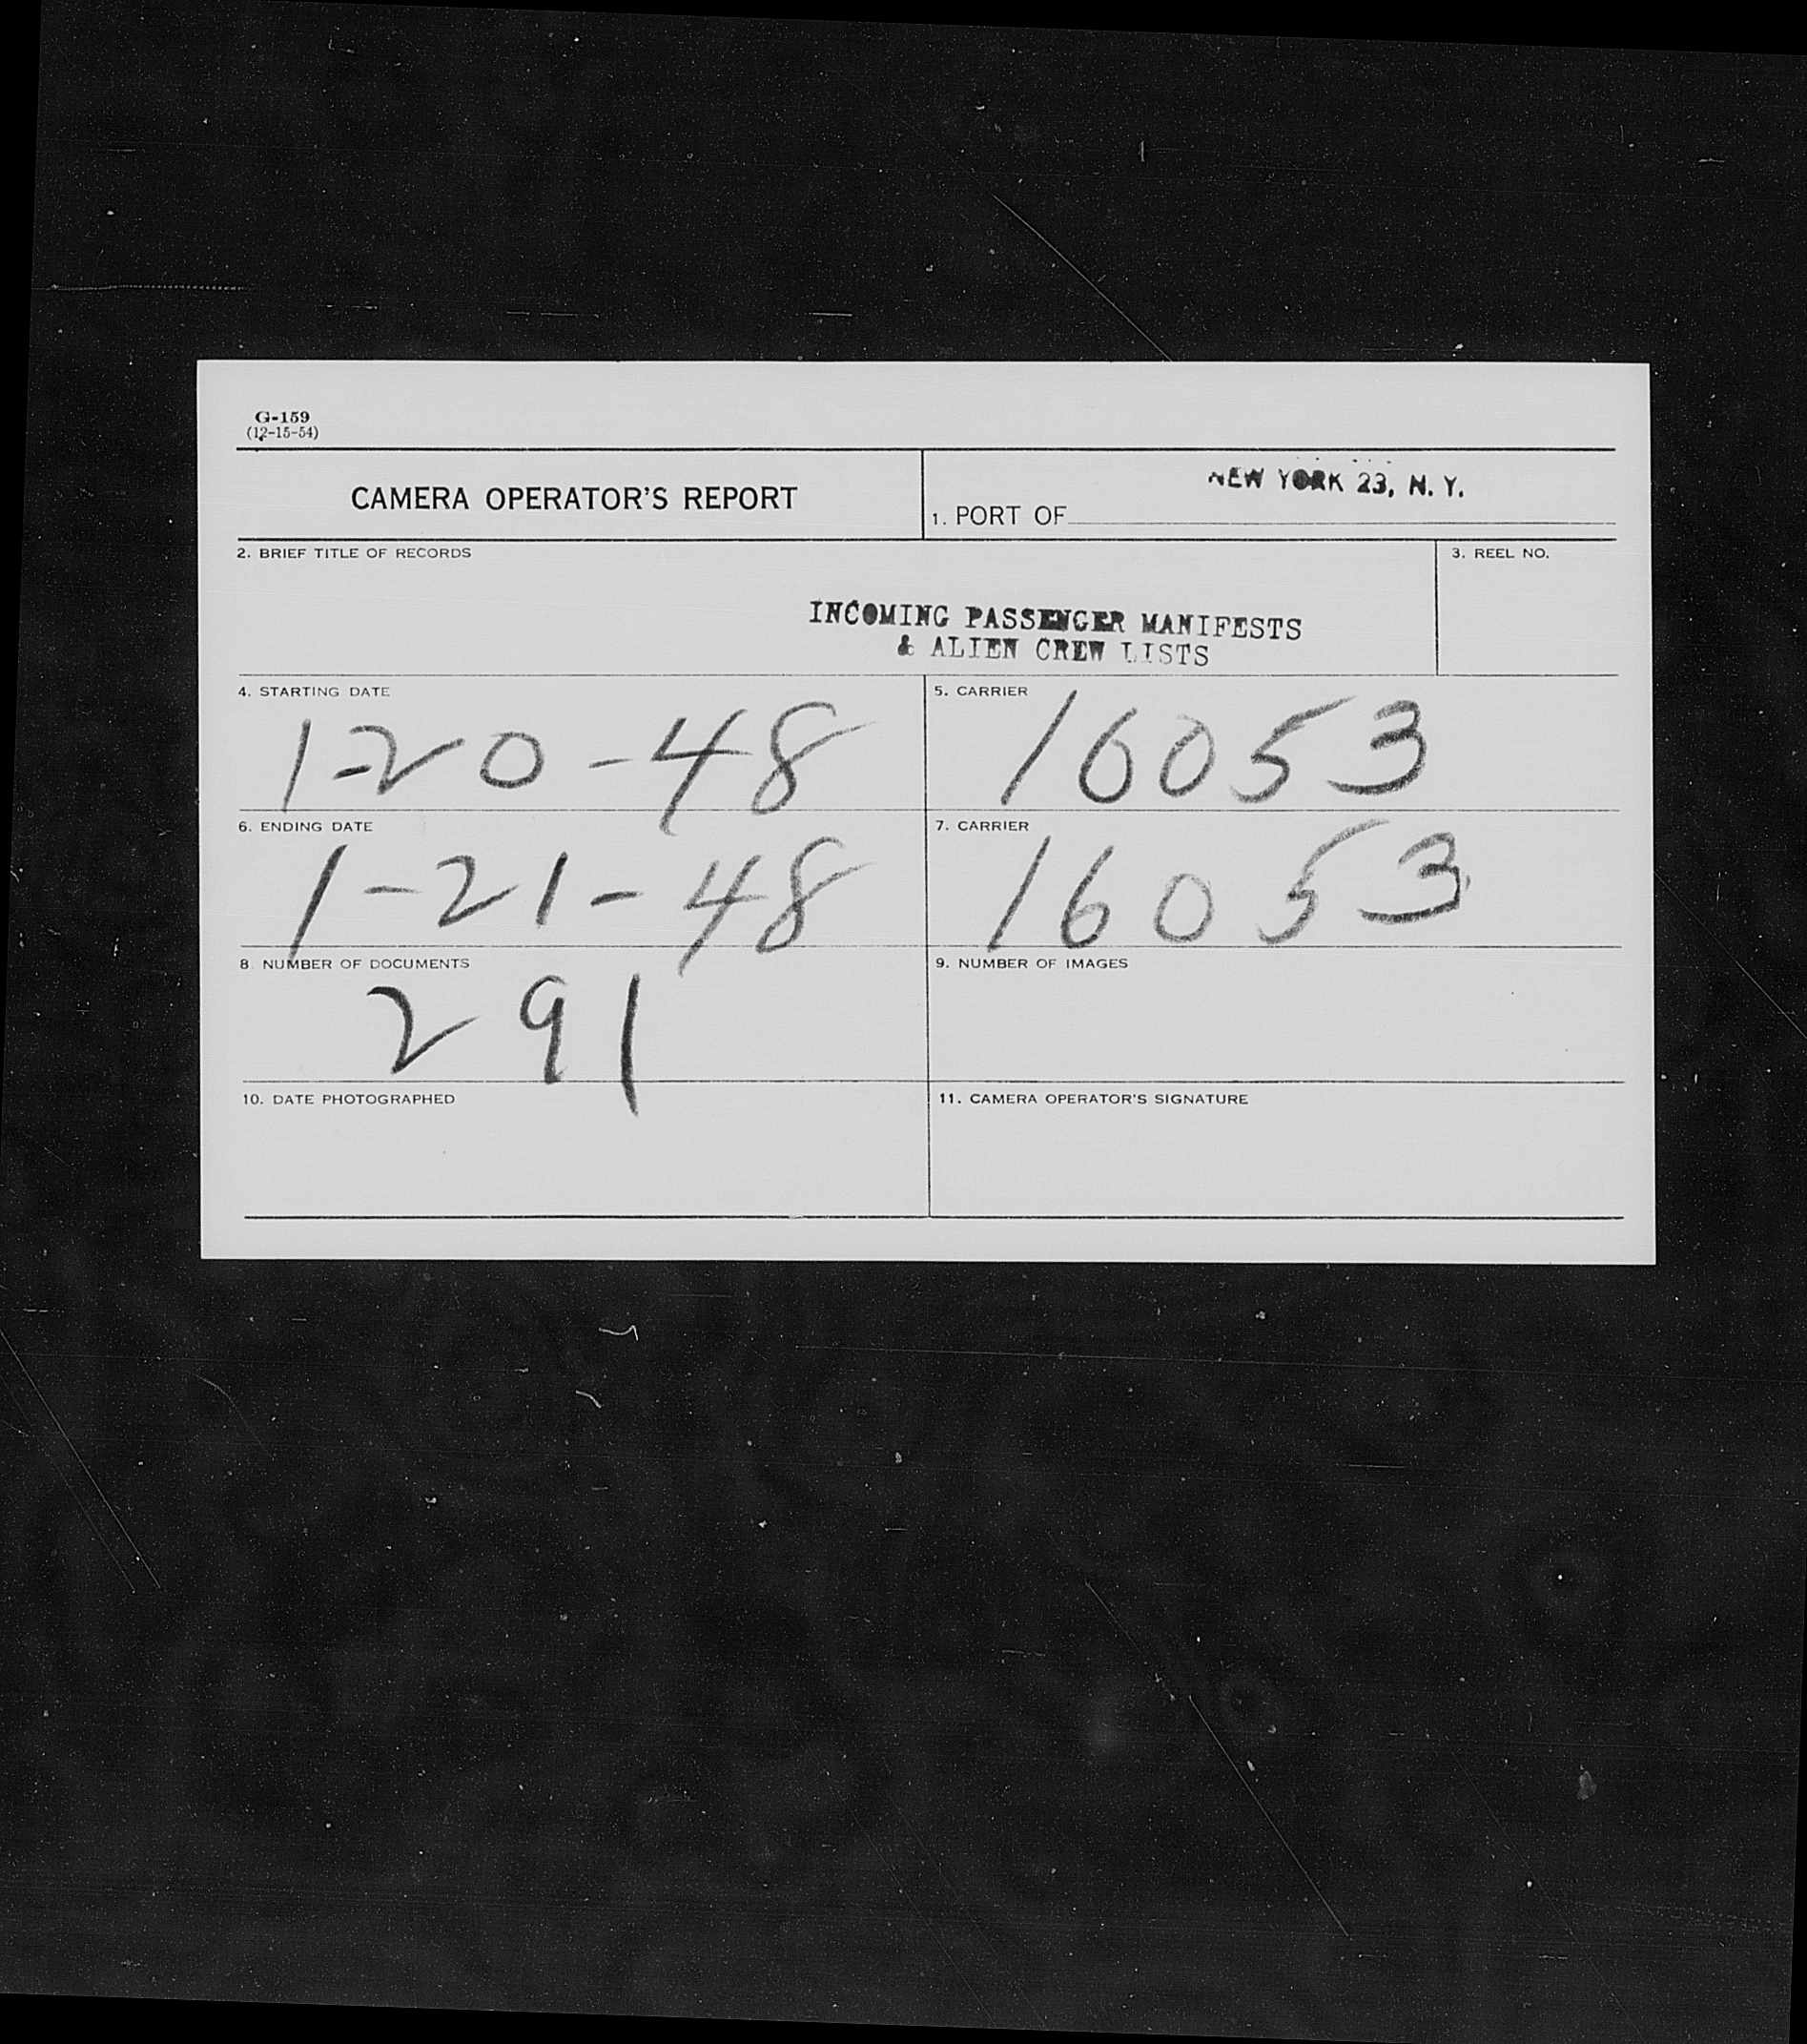 G-159
(12-15-54)
CAMERA OPERATOR'S REPORT
NEW YORK 23, N. Y.
1. PORT OF
2. BRIEF TITLE OF RECORDS
3. REEL NO.
INCOMING PASSENGER MANIFESTS
& ALIEN CREW LISTS
4. STARTING DATE
1-20-48
5. CARRIER
16053
6. ENDING DATE
1-21-48
7. CARRIER
16053
8. NUMBER OF DOCUMENTS
291
9. NUMBER OF IMAGES
10. DATE PHOTOGRAPHED
11. CAMERA OPERATOR'S SIGNATURE